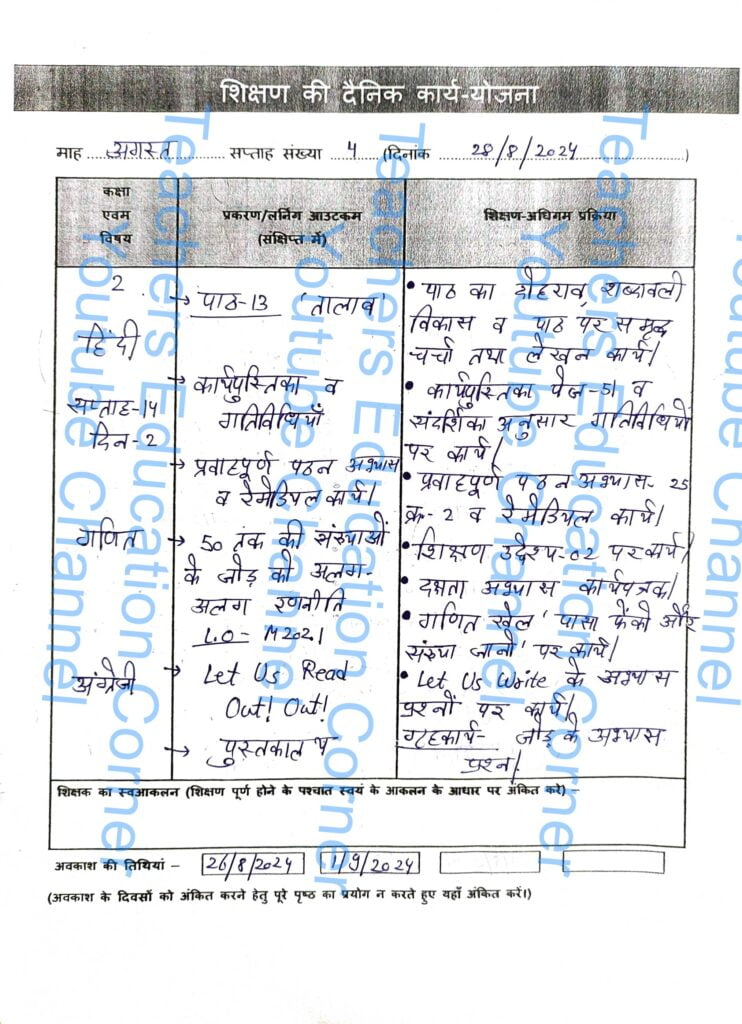 शिक्षण की दैनिक कार्य-योजना
माह ..अगस्त.. सप्ताह संख्या ..4.. (दिनांक ..28/8/2024..)
कक्षा
एवम
विषय
प्रकरण/लर्निंग आउटकम
(संक्षिप्त में)
शिक्षण-अधिगम प्रक्रिया
2
हिंदी
सप्ताह-14
दिन-2
→ पाठ-13 'तालाब'
→ कार्यपुस्तिका व
गतिविधियाँ
→ प्रवाहपूर्ण पठन अभ्यास
व रेमेडियल कार्य।
• पाठ का दोहराव, शब्दावली
विकास व पाठ पर समृद्ध
चर्चा तथा लेखन कार्य।
• कार्यपुस्तिका पेज-51 व
संदर्शिका अनुसार गतिविधियों
पर कार्य।
• प्रवाहपूर्ण पठन अभ्यास- 25
क्र-2 व रेमेडियल कार्य।
गणित
→ 50 तक की संख्याओं
के जोड़ की अलग-
अलग रणनीति
L.O- M202.1
• शिक्षण उद्देश्य-02 पर कार्य।
• दक्षता अभ्यास कार्यपत्रक।
• गणित खेल 'पासा फेंको और
संख्या जानो' पर कार्य।
अंग्रेजी
→ Let Us Read
Out! Out!
→ पुस्तकालय
• Let Us Write के अभ्यास
प्रश्नों पर कार्य।
गृहकार्य- जोड़ के अभ्यास
प्रश्न।
शिक्षक का स्वआकलन (शिक्षण पूर्ण होने के पश्चात स्वयं के आकलन के आधार पर अंकित करे) –
अवकाश की तिथियां – 26/8/2024 1/9/2024
(अवकाश के दिवसों को अंकित करने हेतु पूरे पृष्ठ का प्रयोग न करते हुए यहाँ अंकित करें।)
Teachers Education Corner
Youtube Channel
Teachers Education Corner
Youtube Channel
Teachers Education Corner
Youtube Channel